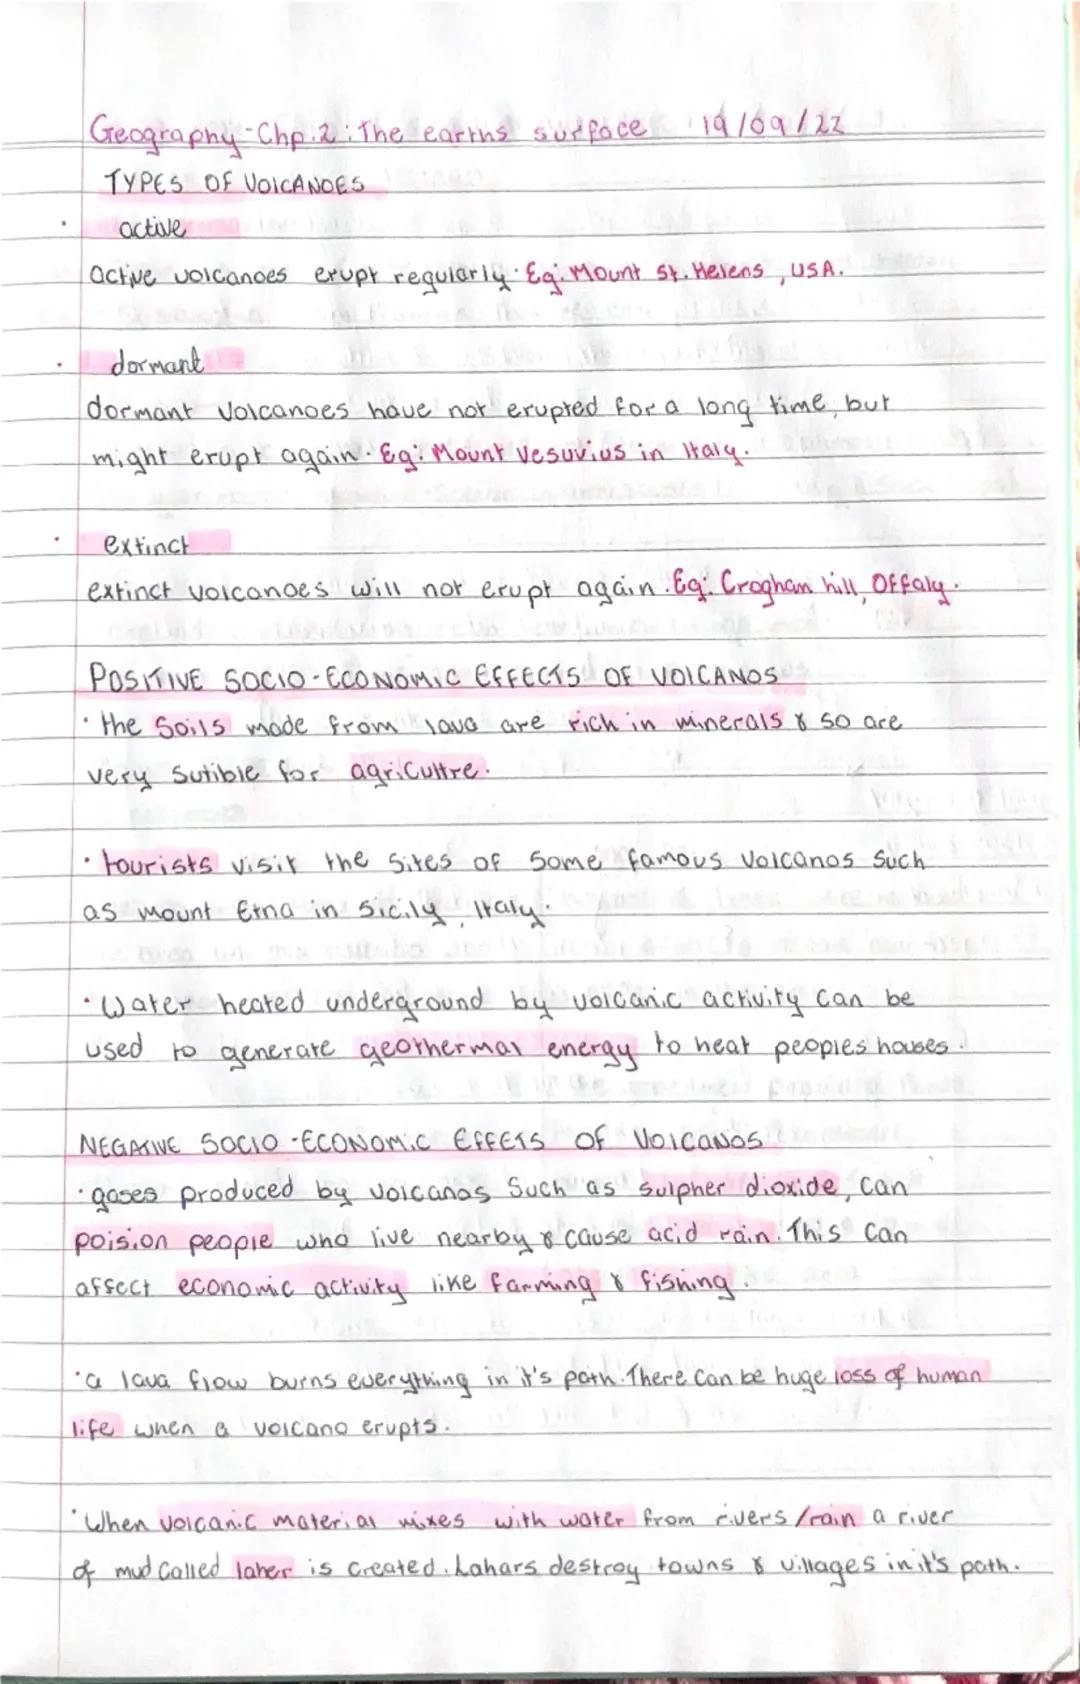 Geography - Chp. 2 : The earths surface 19/09/22
TYPES OF VOLCANOES
· active
active volcanoes erupt regularly. Eg: Mount St. Helens, USA.
· dormant
dormant volcanoes have not erupted for a long time, but
might erupt again. Eg: Mount Vesuvius in Italy.
· extinct
extinct volcanoes will not erupt again. Eg: Croghan hill, Offaly.
POSITIVE SOCIO-ECONOMIC EFFECTS OF VOLCANOS
· the soils made from lava are rich in minerals & so are
very sutible for agricultre.
· tourists visit the sites of some famous volcanos such
as mount Etna in Sicily, Italy.
· Water heated underground by volcanic activity can be
used to generate geothermal energy to heat peoples houses.
NEGATIVE SOCIO-ECONOMIC EFFETS OF VOLCANOS
· gases produced by volcanos such as sulpher dioxide, can
poision people who live nearby & cause acid rain. This can
affect economic activity like farming & fishing.
· a lava flow burns everything in it's path. There can be huge loss of human
life when a volcano erupts.
· When volcanic material mixes with water from rivers/rain a river
of mud called laher is created. Lahars destroy towns & villages in it's path.